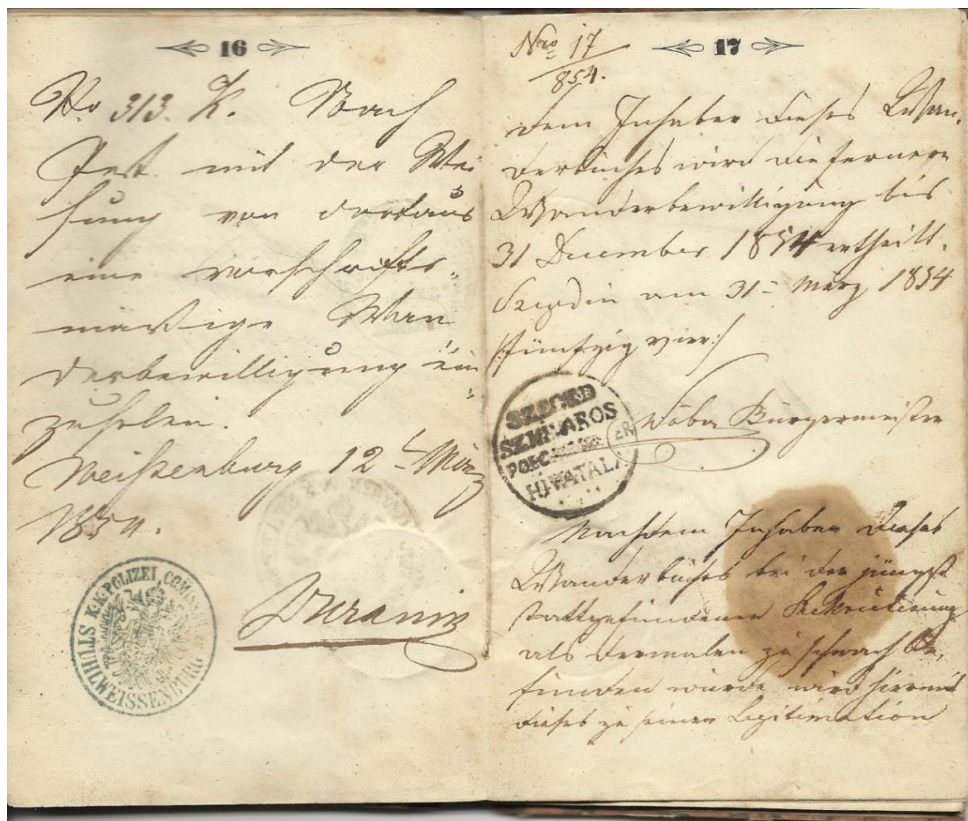 16
No 313. K. Nach
Pest mit der Wei-
sung von dortaus
eine vorschrifts-
mäßige Wan
derbewilligung ein
zuholen.
Weißenburg 12t März
1854.
K.K. POLIZEI
STUHLWEISSENBURG
17
Nro 17
854.
Dem Inhaber dieses Wan-
derbuches wird die fernere
Wanderbewilligung bis
31 December 1854 ertheilt.
Szegedin am 31= März 1854
fünfzig vier
Bürgermeister
SZEGED
VÁROS
HIVATAL
Nachdem Inhaber dieses
Wanderbuches bei der jüngst
stattgefundenen Rekrutierung
als dermalen zu schwach be-
funden wurde wird hiermit
dieses zu seiner Legitimation